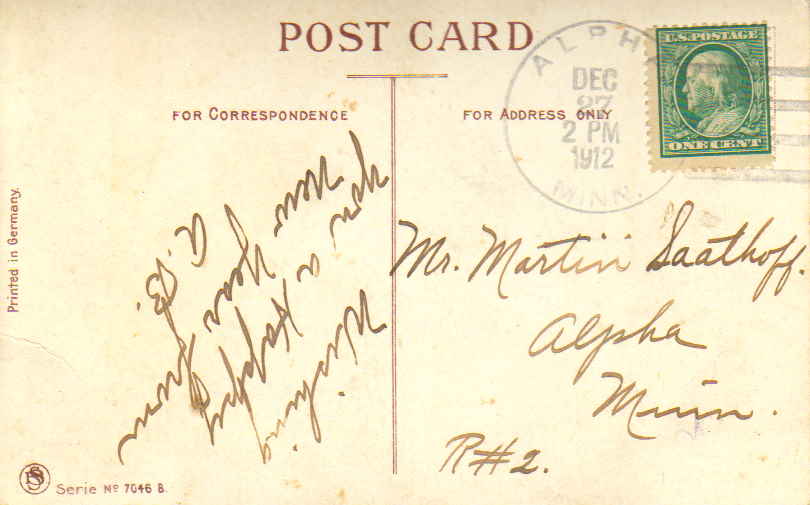 POST CARD
FOR CORRESPONDENCE
FOR ADDRESS ONLY
ALPHA
DEC
27
2 PM
1912
MINN.
U.S. POSTAGE
ONE CENT
Wishing
you a Happy
New Year from
Mr. Martin Saathoff.
Alpha
Minn.
R#2.
Printed in Germany.
Serie Nº 7046 B.